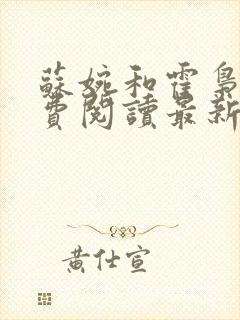 蘇婉和霍梟
費閱讀最新
黃仕宣